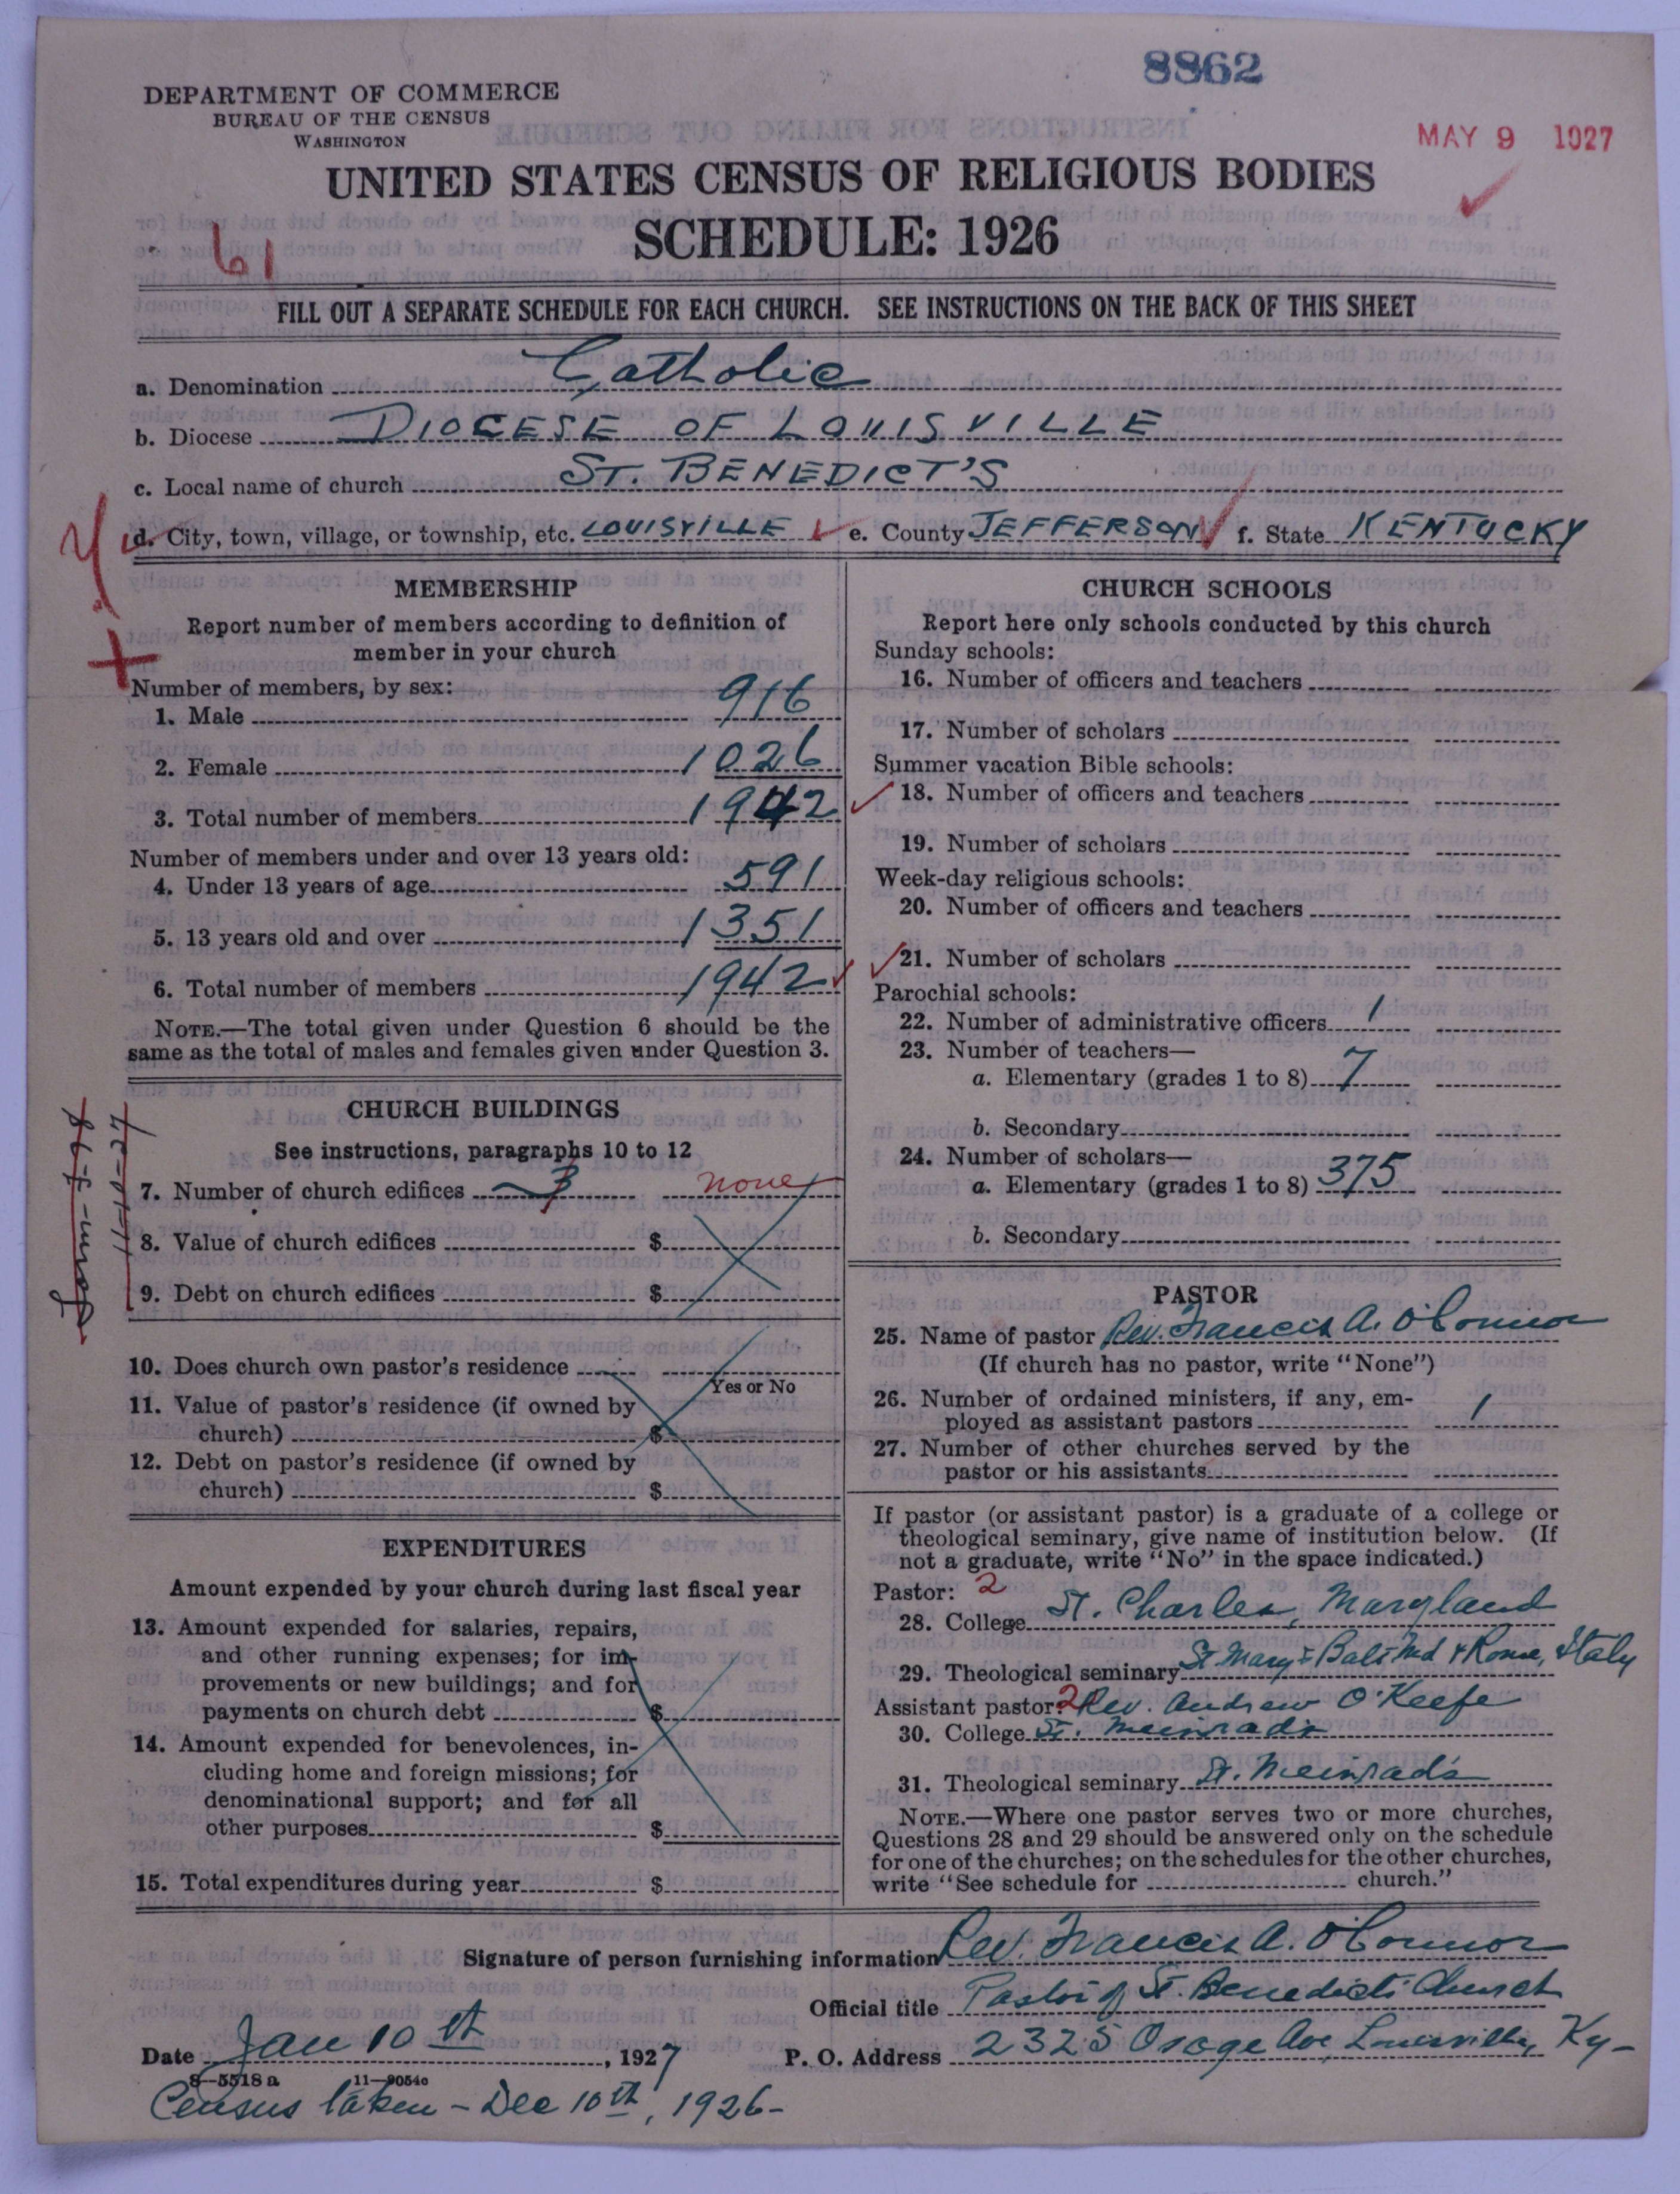 8862
DEPARTMENT OF COMMERCE
BUREAU OF THE CENSUS
WASHINGTON
MAY 9 1927
UNITED STATES CENSUS OF RELIGIOUS BODIES
SCHEDULE: 1926
61
FILL OUT A SEPARATE SCHEDULE FOR EACH CHURCH. SEE INSTRUCTIONS ON THE BACK OF THIS SHEET
a. Denomination Catholic
b. Diocese DIOCESE OF LOUISVILLE
c. Local name of church ST. BENEDICT'S
d. City, town, village, or township, etc. LOUISVILLE e. County JEFFERSON f. State KENTUCKY
MEMBERSHIP
Report number of members according to definition of
member in your church
Number of members, by sex:
1. Male 916
2. Female 1026
3. Total number of members 1942
Number of members under and over 13 years old:
4. Under 13 years of age 591
5. 13 years old and over 1351
6. Total number of members 1942
NOTE.—The total given under Question 6 should be the
same as the total of males and females given under Question 3.
CHURCH BUILDINGS
See instructions, paragraphs 10 to 12
7. Number of church edifices 3 none
8. Value of church edifices $
9. Debt on church edifices $
10. Does church own pastor's residence
Yes or No
11. Value of pastor's residence (if owned by
church) $
12. Debt on pastor's residence (if owned by
church) $
11-10-27
EXPENDITURES
Amount expended by your church during last fiscal year
13. Amount expended for salaries, repairs,
and other running expenses; for im-
provements or new buildings; and for
payments on church debt $
14. Amount expended for benevolences, in-
cluding home and foreign missions; for
denominational support; and for all
other purposes $
15. Total expenditures during year $
CHURCH SCHOOLS
Report here only schools conducted by this church
Sunday schools:
16. Number of officers and teachers
17. Number of scholars
Summer vacation Bible schools:
18. Number of officers and teachers
19. Number of scholars
Week-day religious schools:
20. Number of officers and teachers
21. Number of scholars
Parochial schools:
22. Number of administrative officers 1
23. Number of teachers—
a. Elementary (grades 1 to 8) 7
b. Secondary
24. Number of scholars—
a. Elementary (grades 1 to 8) 375
b. Secondary
PASTOR
25. Name of pastor Rev. Francis A. O'Connor
(If church has no pastor, write "None")
26. Number of ordained ministers, if any, em-
ployed as assistant pastors 1
27. Number of other churches served by the
pastor or his assistants
If pastor (or assistant pastor) is a graduate of a college or
theological seminary, give name of institution below. (If
not a graduate, write "No" in the space indicated.)
Pastor: 2
28. College St. Charles, Maryland
29. Theological seminary St Mary's Balt Md & Rome, Italy
Assistant pastor: 2 Rev. Andrew O'Keefe
30. College St. Meinrad's
31. Theological seminary St. Meinrad's
NOTE.—Where one pastor serves two or more churches,
Questions 28 and 29 should be answered only on the schedule
for one of the churches; on the schedules for the other churches,
write "See schedule for church."
Signature of person furnishing information Rev. Francis A. O'Connor
Official title Pastor of St. Benedict's Church
Date Jan 10th, 1927 P. O. Address 2325 Osage Ave, Louisville, Ky-
8-5518a 11-9054c
Census taken - Dec 10th, 1926-